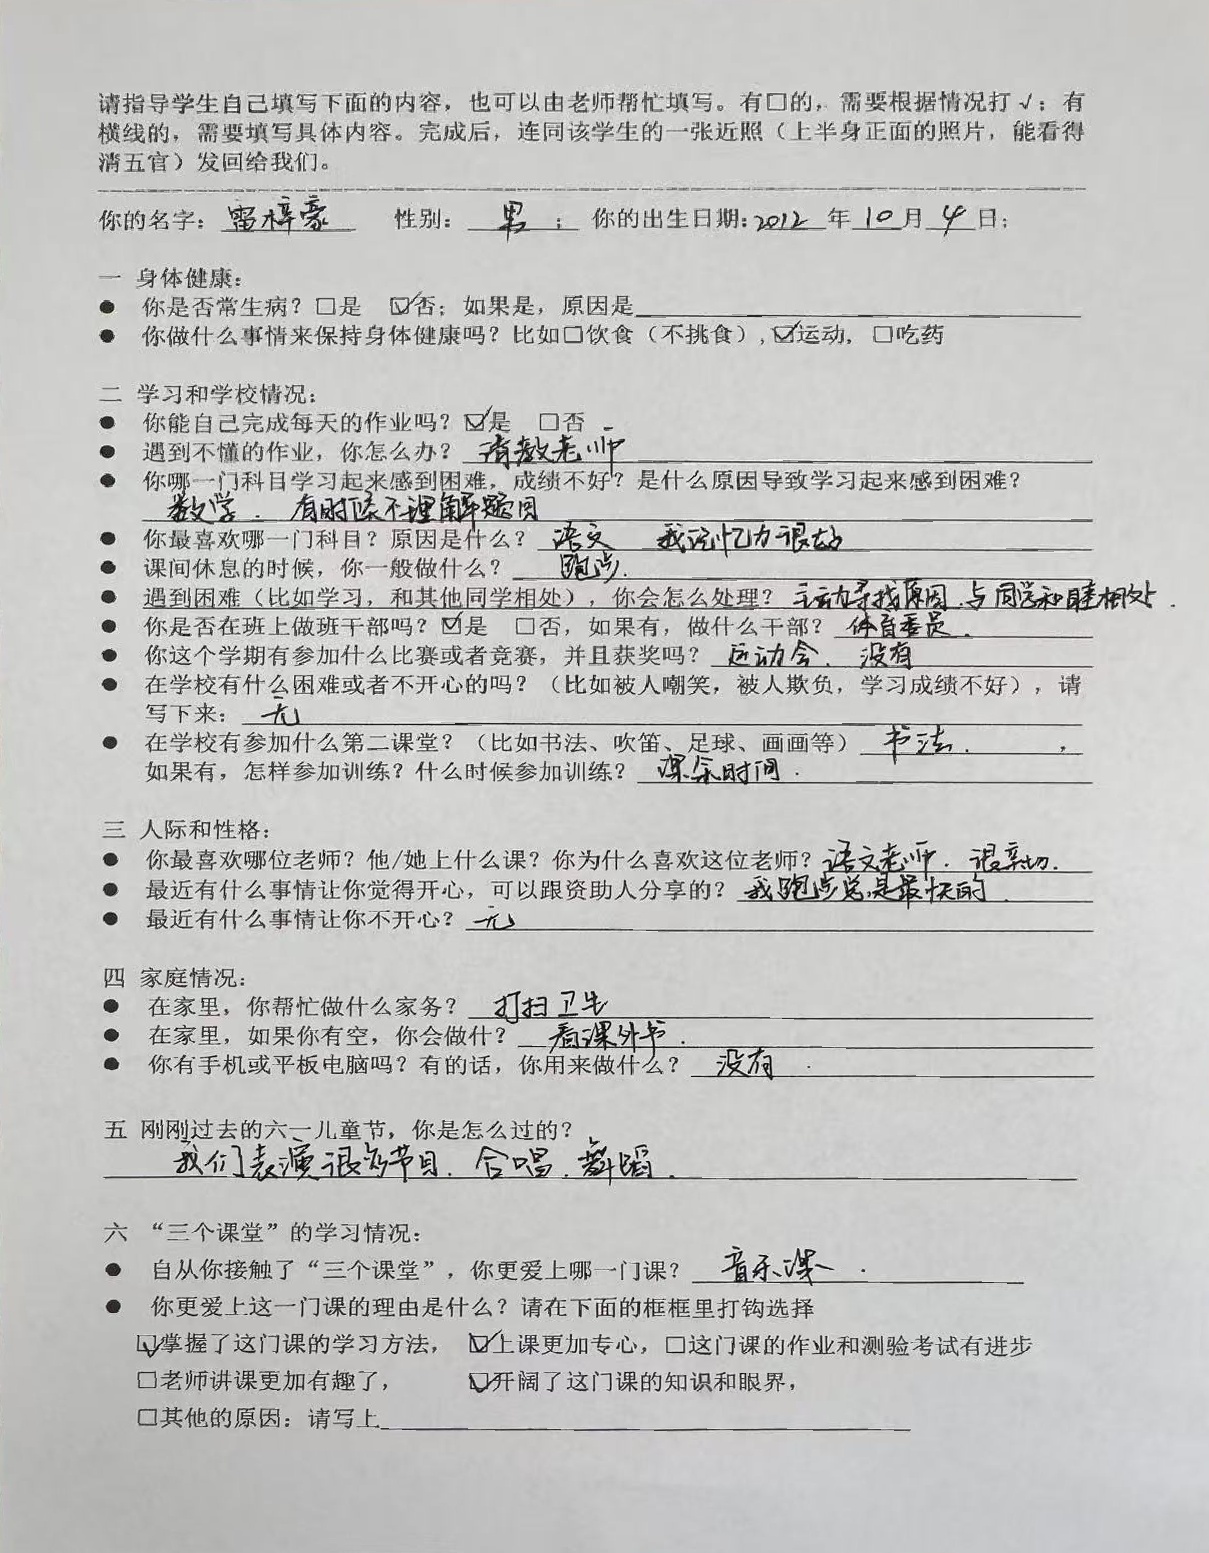 请指导学生自己填写下面的内容，也可以由老师帮忙填写。有□的，需要根据情况打√；有
横线的，需要填写具体内容。完成后，连同该学生的一张近照（上半身正面的照片，能看得
清五官）发回给我们。
你的名字：雷梓豪 性别：男； 你的出生日期：2012年10月4日；
一 身体健康：
● 你是否常生病？□是 ☑否；如果是，原因是
● 你做什么事情来保持身体健康吗？比如□饮食（不挑食），☑运动，□吃药
二 学习和学校情况：
● 你能自己完成每天的作业吗？☑是 □否
● 遇到不懂的作业，你怎么办？请教老师
● 你哪一门科目学习起来感到困难，成绩不好？是什么原因导致学习起来感到困难？
数学．有时候不理解题目
● 你最喜欢哪一门科目？原因是什么？语文 我记忆力很好
● 课间休息的时候，你一般做什么？跑步．
● 遇到困难（比如学习，和其他同学相处），你会怎么处理？主动寻找原因．与同学和睦相处．
● 你是否在班上做班干部吗？☑是 □否，如果有，做什么干部？体育委员．
● 你这个学期有参加什么比赛或者竞赛，并且获奖吗？运动会．没有
● 在学校有什么困难或者不开心的吗？（比如被人嘲笑，被人欺负，学习成绩不好），请
写下来：无
● 在学校有参加什么第二课堂？（比如书法、吹笛、足球、画画等）书法． ，
如果有，怎样参加训练？什么时候参加训练？课余时间．
三 人际和性格：
● 你最喜欢哪位老师？他/她上什么课？你为什么喜欢这位老师？语文老师．很亲切．
● 最近有什么事情让你觉得开心，可以跟资助人分享的？我跑步总是最快的．
● 最近有什么事情让你不开心？无
四 家庭情况：
● 在家里，你帮忙做什么家务？打扫卫生
● 在家里，如果你有空，你会做什？看课外书．
● 你有手机或平板电脑吗？有的话，你用来做什么？没有．
五 刚刚过去的六一儿童节，你是怎么过的？
我们表演很多节目．合唱．舞蹈．
六 “三个课堂”的学习情况：
● 自从你接触了“三个课堂”，你更爱上哪一门课？音乐课．
● 你更爱上这一门课的理由是什么？请在下面的框框里打钩选择
☑掌握了这门课的学习方法， ☑上课更加专心，□这门课的作业和测验考试有进步
□老师讲课更加有趣了， ☑开阔了这门课的知识和眼界，
□其他的原因：请写上